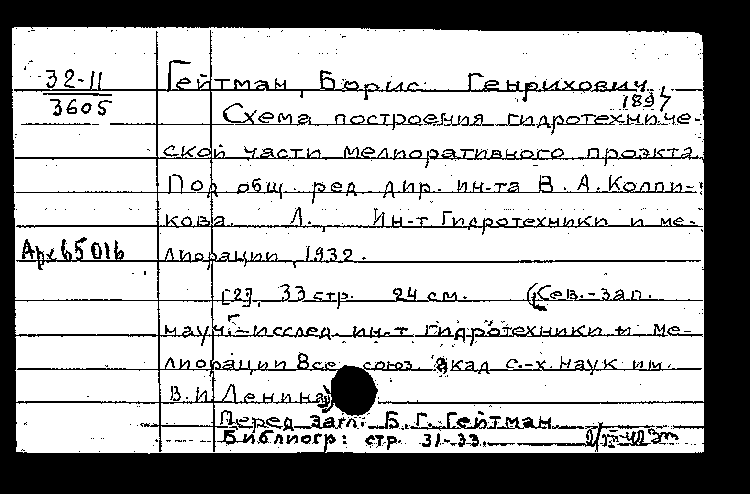 32-11
3605
Гейтман, Борис Генрихович,
1897
Схема построения гидротехниче-
ской части мелиоративного проэкта.
Под общ. ред. дир. ин-та В. А. Колпи-
кова. Л., Ин-т Гидротехники и ме-
Арх 65016
лиорации, 1932.
[2], 33 стр. 24 см. (Сев.-зап.
науч.-исслед. ин-т гидротехники и ме-
лиорации Все союз. акад с.-х. наук им.
В. И. Ленина)
Перед загл: Б. Г. Гейтман
Библиогр: стр. 31-33.